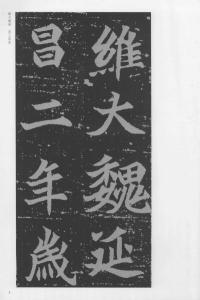 維大魏延
昌二年歲